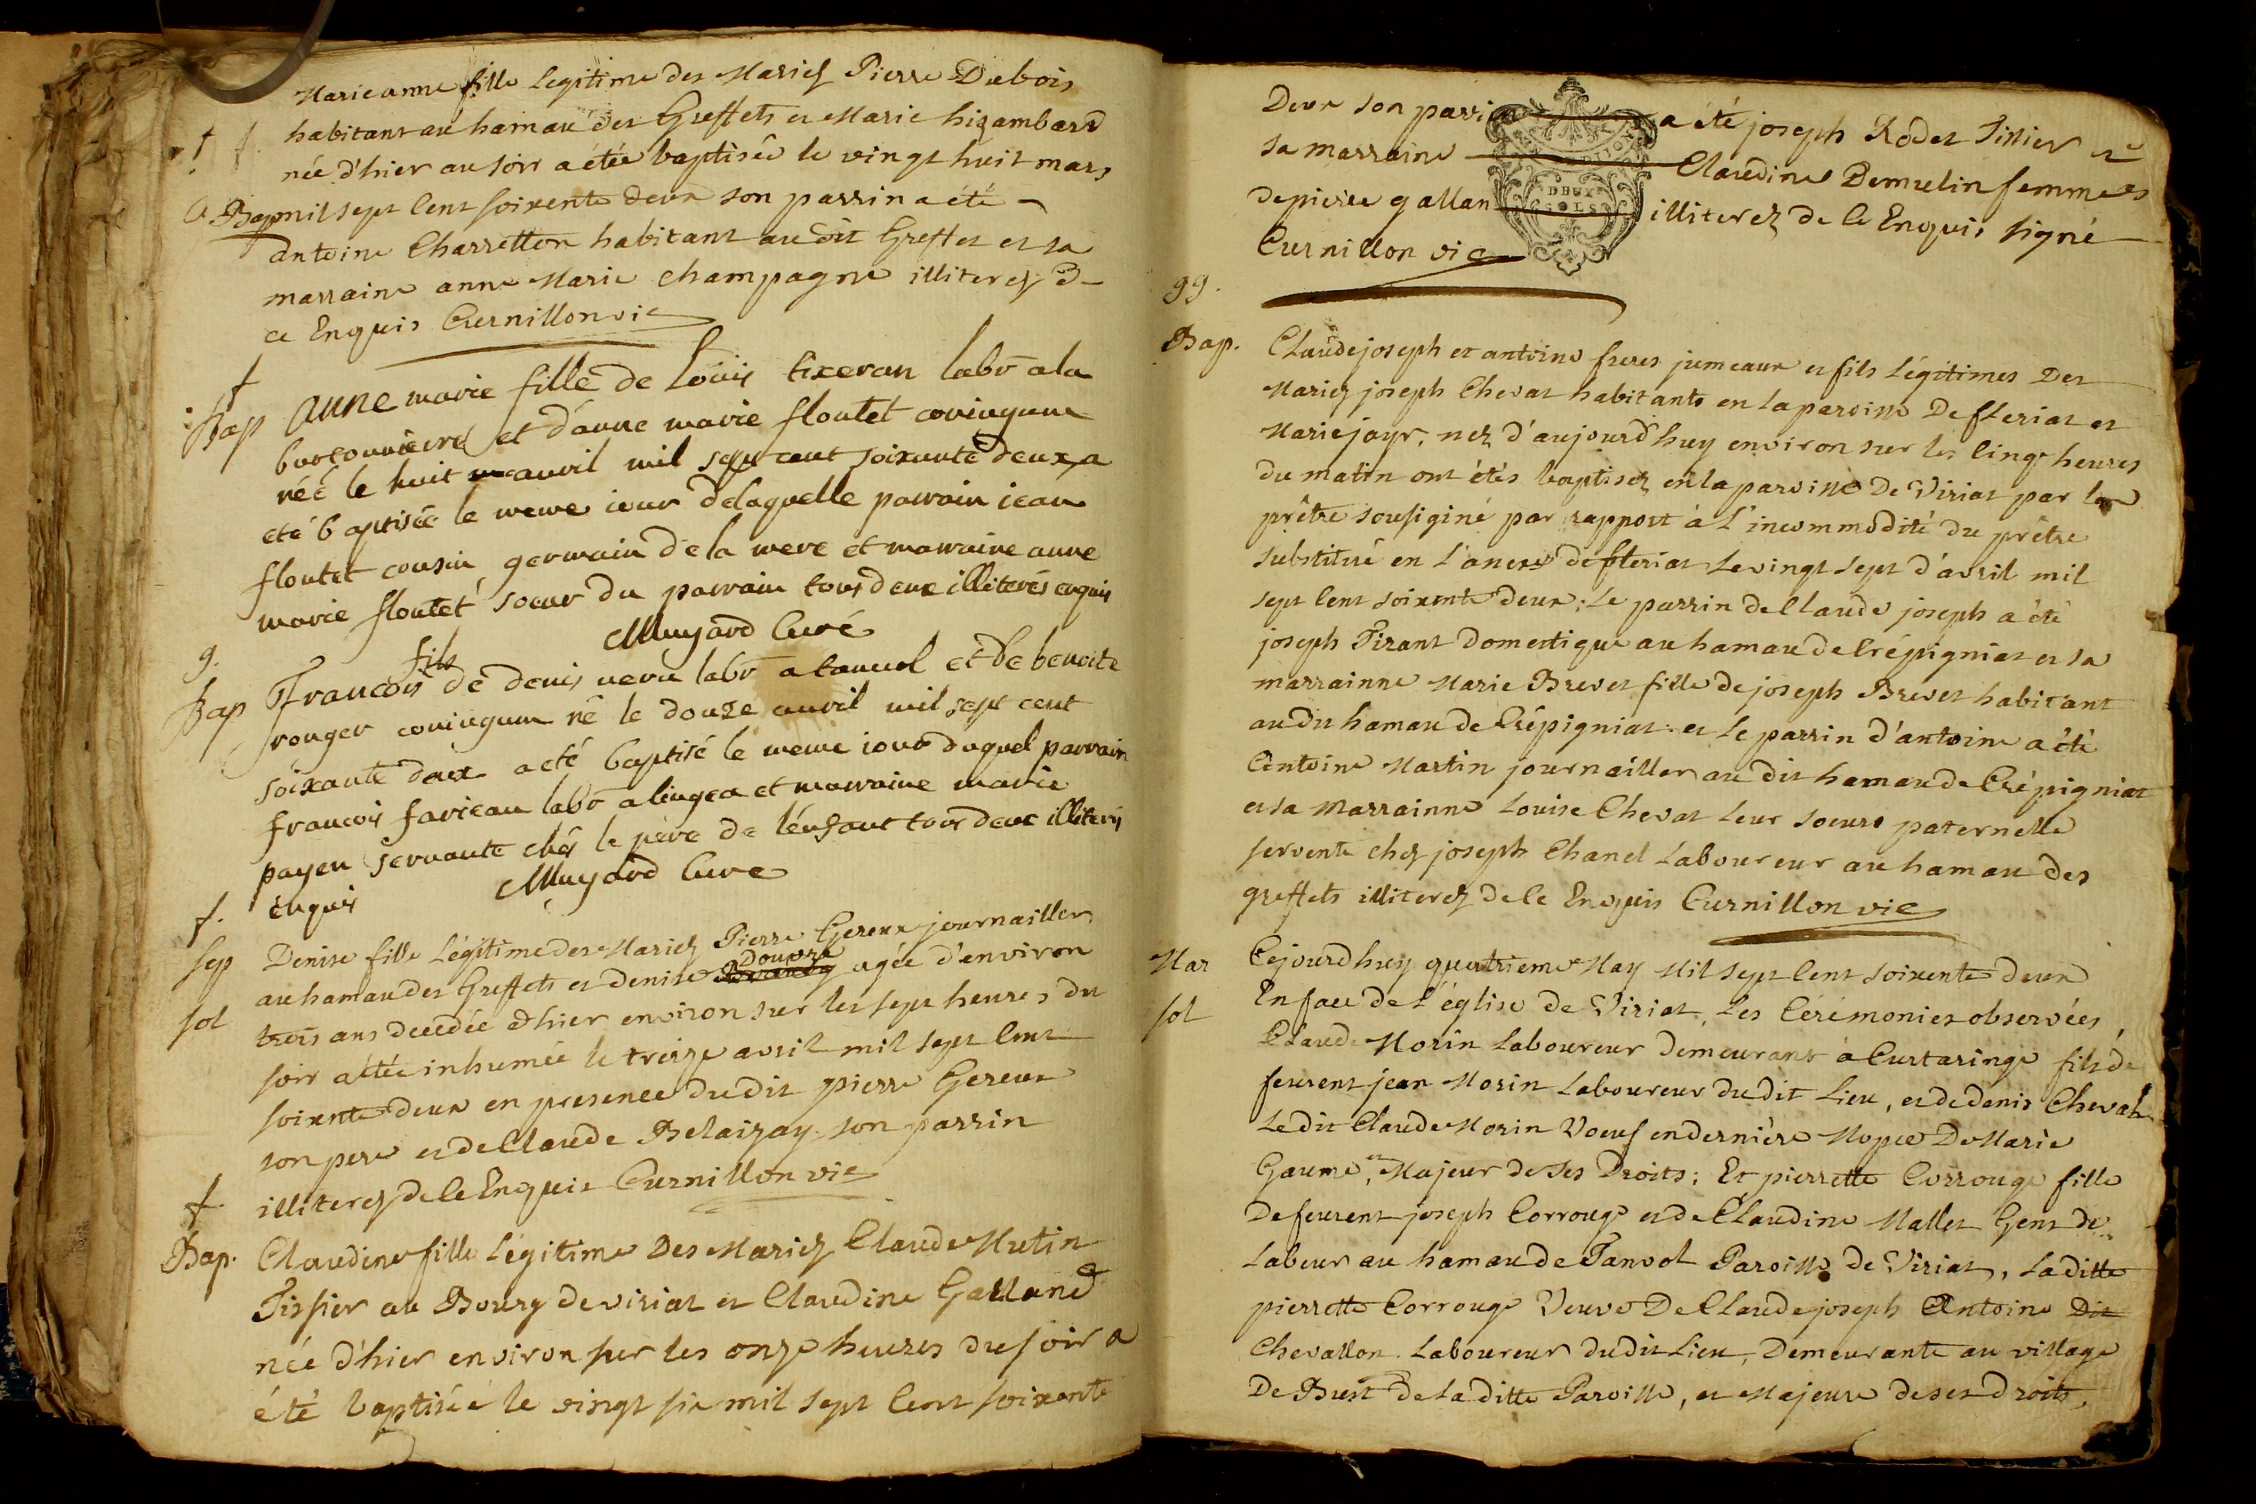 Marieanne fille Legitime des Mariez Pierre Dubois
habitant au hamau des Greffets et Marie hizambard
née d'hier au soir a étée baptisée le vingt huit mars
Bap mil sept Cent soixente deux son parrin a été
antoine Charretton habitant au dit Greffet et sa
marraine anne Marie Champagne illiterez de
ce Enquis Curnillon vic
Bap anne marie fille de Loüis tixeran labo a la
et d'anne marie floutet coniugum
néé le huit avril mil sept cent soixante deux a
eté baptisée le meme iour de laquelle parrain iean
floutet cousin germain de la mere et marraine anne
marie floutet soeur du parrain tous deux illiterés enquis
Muyard Curé
g.
fils
Bap Francois de denis neru labo a tanvol et de benoite
rouger coniugum né le douze avril mil sept cent
soixante deux a eté baptisé le meme iour duquel parrain
francois farieau labo a lingea et marraine marie
payen servante chés le père de l'enfant tous deux illiterés
enquis Muyard Curé
f.
Sep Denise fille Légitime des Mariez Pierre Gereux journaillier
Douvre
au hamau des Greffets et denise agée d'environ
sol trois ans decedée d'hier environ sur les sept heures du
soir a étée inhumée le treize avril mil sept Cent
soixente deux en presence du dit pierre Gereux
son pere et de Claude Belaizay son parrin
illiterez de Ce Enquis Curnillon vic
f.
Bap. Claudine fille Légitime Des Mariez Claude Mutin
Tissier au Bourg de viriat et Claudine Galland
née d'hier environ sur les onze heures du soir a
été baptisée le vingt six mil sept Cent soixente
Deux son parrin a été joseph Rodet Tissier et
sa marraine Claudine Demulin femme
de pierre gallan illiterez de Ce Enquis signé
Curnillon vic
DEUX
SOLS
gg.
Bap. Claudejoseph et antoine freres jumeaux et fils Légitimes Des
Mariez joseph Chevat habitants en la paroisse De fleriat et
Marie jayr, nez d'aujourd'huy environ sur les Cinq heures
du matin ont étés baptisez en la paroisse De Viriat par le
prêtre sousigné par rapport à L'incommodité du prêtre
substitué en L'anexe de fleriat Le vingt sept d'avril mil
sept Cent soixente deux; Le parrin de Claude joseph a été
joseph Tirant Domestique au hamau de Crépigniat et sa
marrainne Marie Brevet fille de joseph Brevet habitant
au dit hamau de Crépigniat. et Le parrin d'antoine a été
antoine Martin journaillier au dit hamau de Crépigniat
et sa Marrainne Louise Chevat Leur soeure paternelle
servente chez joseph Chanel Laboureur au hamau des
greffets illiterez de Ce Enquis Curnillon vic
Mar Cejourd'huy quatrieme May Mil sept Cent soixente deux
sol En face de L'église de Viriat, Les Cérémonies observées,
Claude Morin Laboureur demeurant à Curtaringe fils de
feurent jean Morin Laboureur du dit Lieu, et de denis Chevat
Le dit Claude Morin Voeuf en dernière Nopce De Marie
Gaume, et Majeur de ses Droits; Et pierrette Corrouge fille
De feurent joseph Corrouge et de Claudine Mallet Gens de
Labeur au hamau de Tanvol Paroisse de Viriat, La ditte
pierrette Corrouge Veuve De Claude joseph Antoine Dit
Chevallon Laboureur du dit Lieu, Demeurante au village
De Bust de La ditte Paroisse, et Majeure de ses droits,